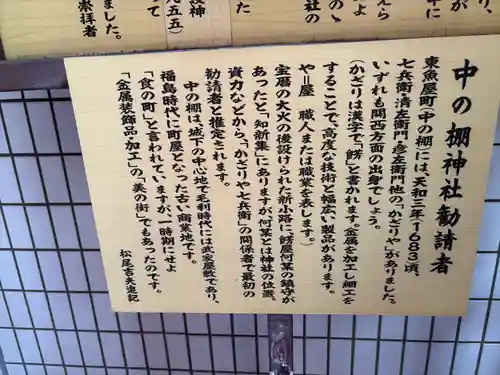 中の棚神社勧請者
東魚屋町（中の棚）には、天和三年（1683）頃、
七兵衛・清左衛門・彦左衛門他の「かざりや」がありました。
いずれも関西方面の出身でしょう。
（かざりは漢字で「餝」と書かれます。金属を加工し細工を
することで、高度な技術と幅広い製品があります。
や＝屋　職人または職業を表します。）
宝暦の大火の後設けられた新小路に、餝屋何某の鎮守が
あったと「知新集」にありますが、何某とは神社の位置、
資力などから、「かざりや七兵衛」の関係者で最初の
勧請者と推定されます。
中の棚は、城下の中心地で毛利時代には武家屋敷であり、
福島時代に町屋となった古い商業地です。
「食の町」と言われていますが、一時期にせよ
「金属装飾品・加工」の「美の街」でもあったのです。
松尾吉夫追記
えら
のよ
社の
た
護神
五五）
て
ました。
崇拝者
に